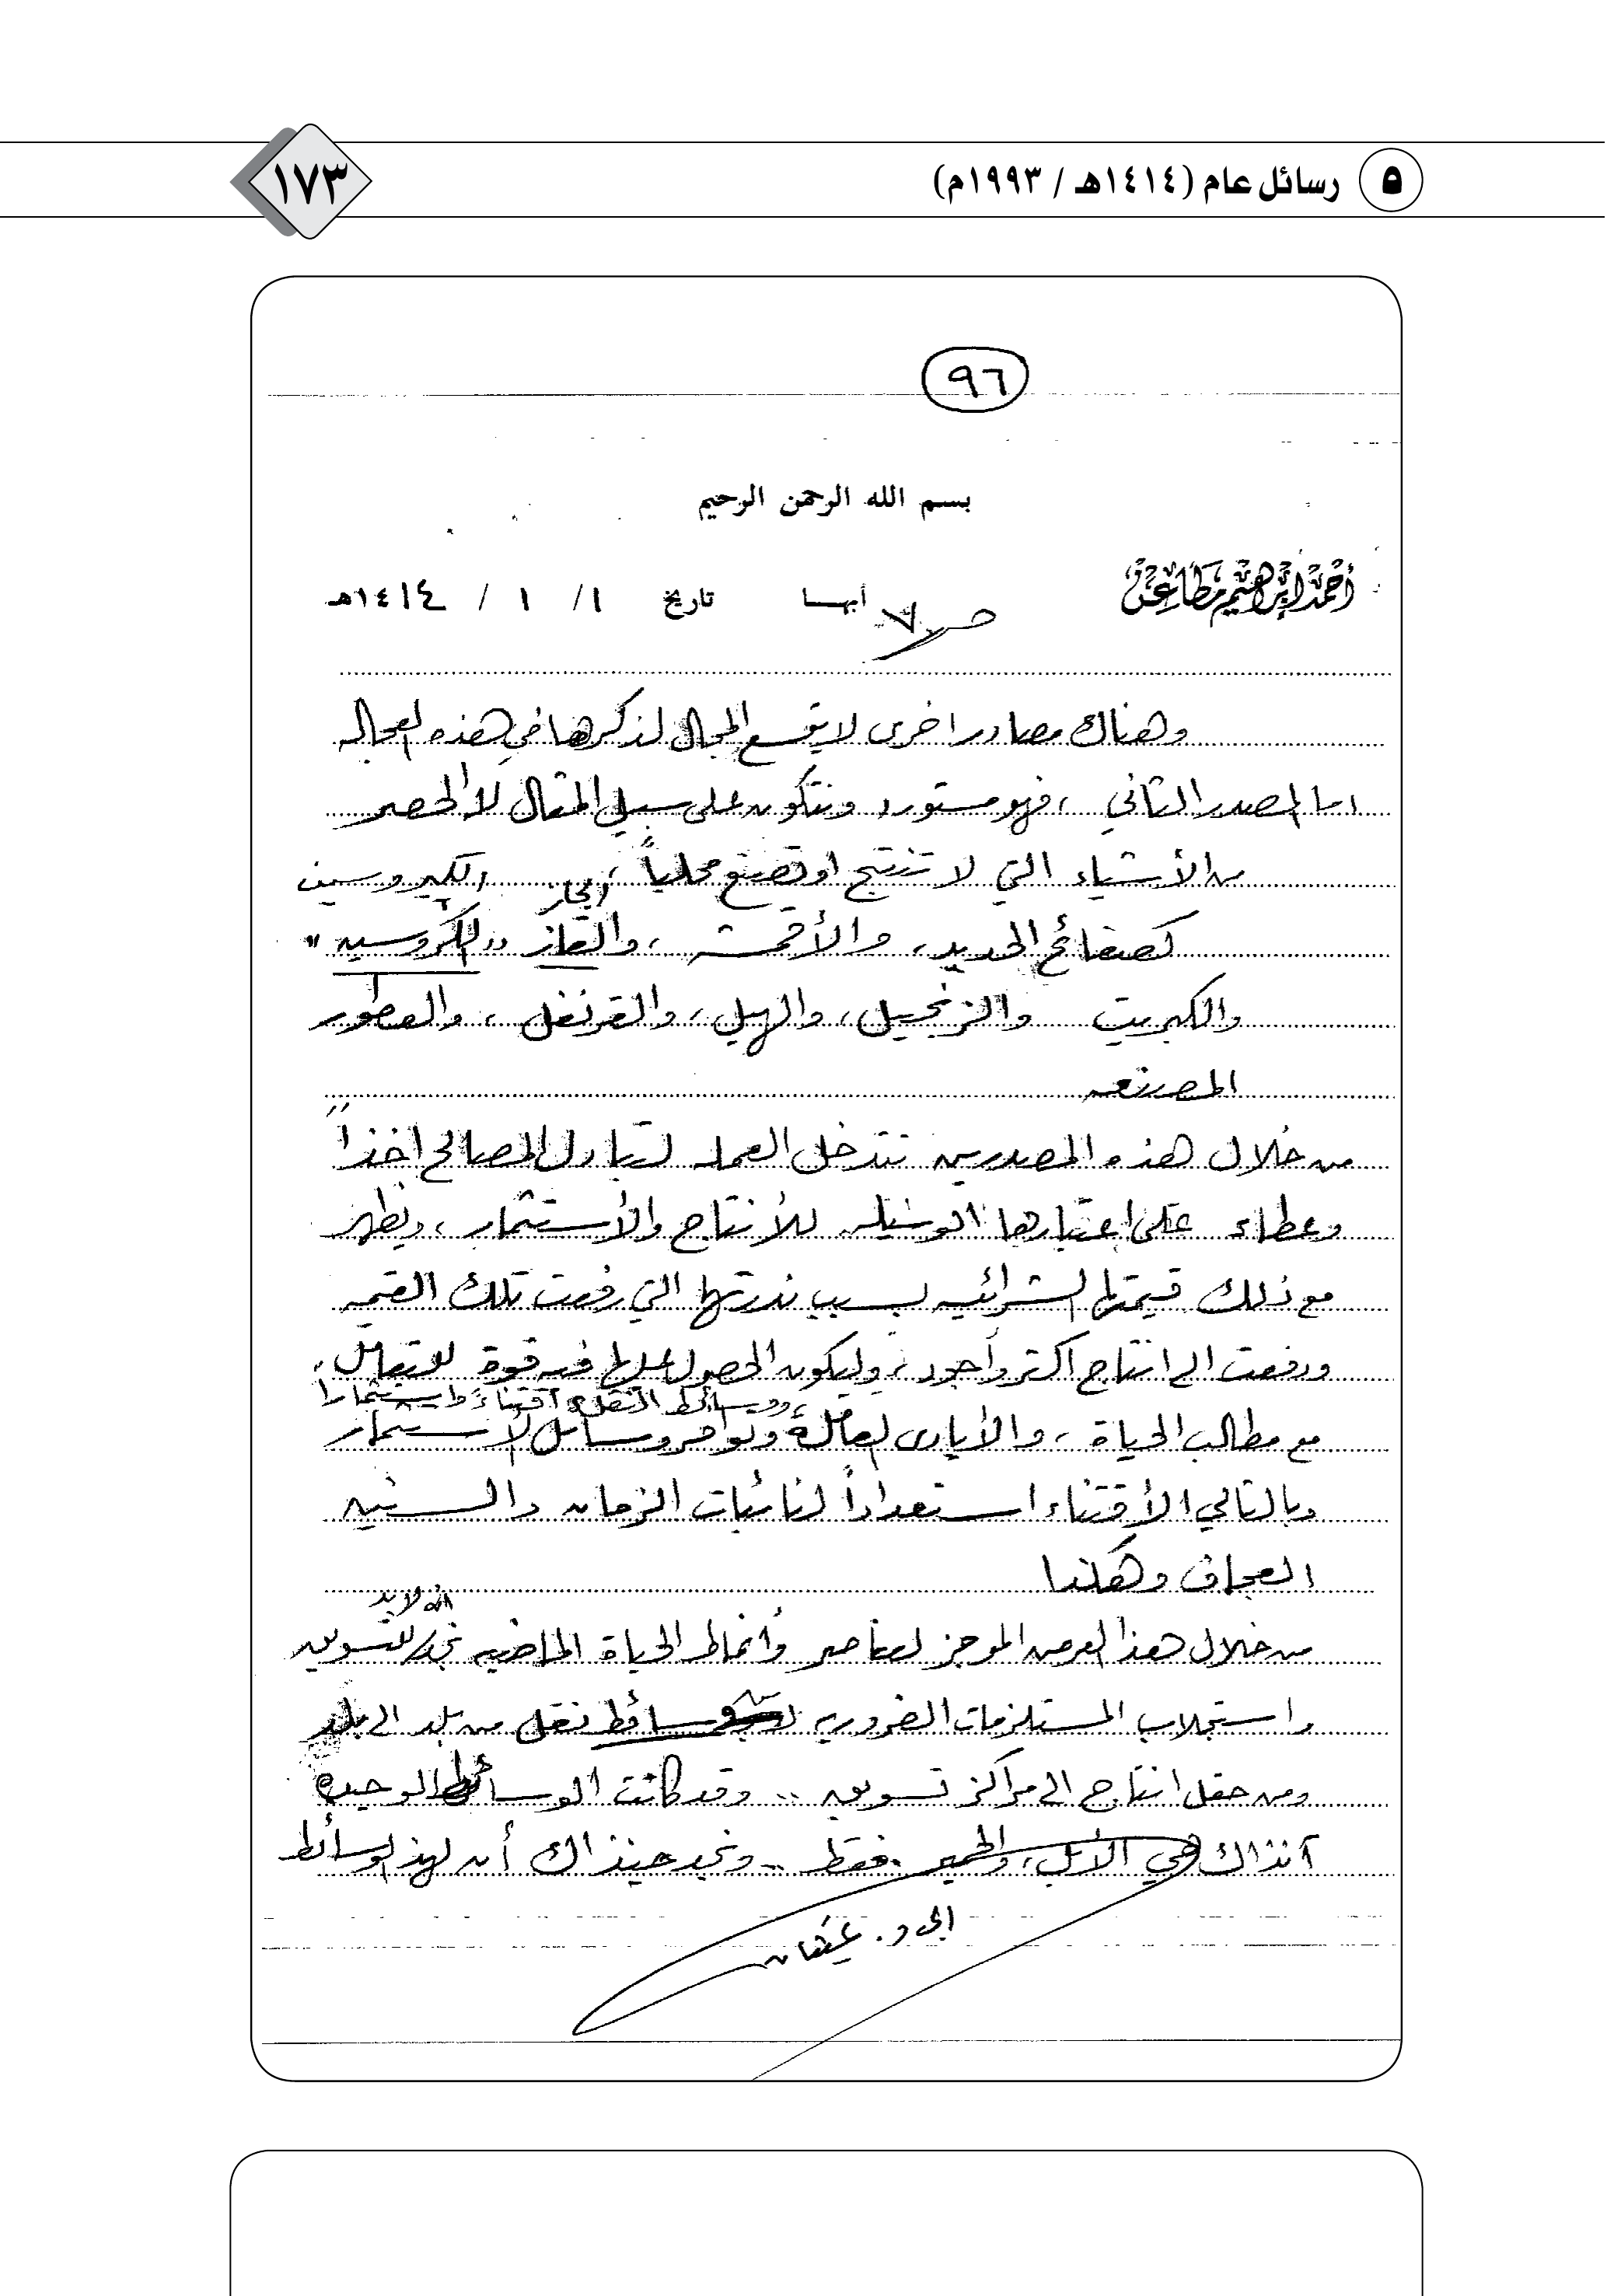 ٥ رسائل عام (١٤١٤هـ / ١٩٩٣م)
١٧٣
٩٦
بسم الله الرحمن الرحيم
أحمد إبراهيم مطاعن
أبها تاريخ ١ / ١ / ١٤١٤هـ
وهناك مصادر اخرى لا يتسع المجال لذكرها في هذه العجاله
اما المصدر الثاني ، فهو مستورد ويتكون على سبيل المثال لا الحصر
من الأشياء التي لا تنتج او تصنع محلياً ،
الكيروسين
كصفائح الحديد ، والأقمشه ، والقاز "الكروسين"
والكبريت والزنجبيل ، والهيل ، والقرنفل ، والعطور
المصنعه
من خلال هذه المصدرين تتدخل العمله لتبادل المصالح اخذاً
وعطاء على اعتبارها الوسيله للأنتاج والأستثمار ، ويظهر
مع ذلك قيمتها الشرائيه بسبب ندرتها التي رفعت تلك القيمه
ودفعت الى انتاج اكثر وأجود ، وليكون الحصول عليها فيه قوة للتعامل ،
ووسائط النقل اقتناءً واستثمارا
مع مطالب الحياة ، والأيادى العاملة وتوافر وسائل الأستثمار
وبالتالي الأقتناء استعداداً لنائبات الزمان والسنين
العجاف وهكذا
انه لابد
من خلال هذا العرض الموجز لعناصر وأنماط الحياة الماضيه نجد للتسويق
واستجلاب المستلزمات الضروريه نقل من بلد الى بلد
ومن حقل انتاج الى مراكز تسويق .. وقد كانت الوسائط الوحيده
آنذاك هي الأبل ، والحمير فقط .. ونجد حينذاك أن لهذه الوسائط
الى د. غيثان